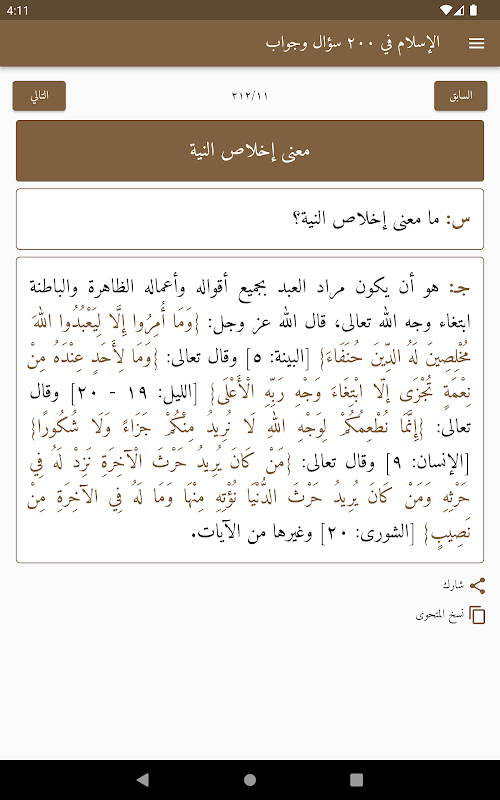 4:11
الإسلام في ٢٠٠ سؤال وجواب
السابق
٢١٢/١١
التالي
معنى إخلاص النية
س: ما معنى إخلاص النية؟
جـ: هو أن يكون مراد العبد بجميع أقواله وأعماله الظاهرة والباطنة
ابتغاء وجه الله تعالى، قال الله عز وجل: {وَمَا أُمِرُوا إِلَّا لِيَعْبُدُوا اللهَ
مُخْلِصِينَ لَهُ الدِّينَ حُنَفَاءَ} [البينة: ٥] وقال تعالى: {وَمَا لِأَحَدٍ عِنْدَهُ مِنْ
نِعْمَةٍ تُجْزَى إِلَّا ابْتِغَاءَ وَجْهِ رَبِّهِ الْأَعْلَى} [الليل: ١٩ - ٢٠] وقال
تعالى: {إِنَّمَا نُطْعِمُكُمْ لِوَجْهِ اللهِ لَا نُرِيدُ مِنْكُمْ جَزَاءً وَلَا شُكُورًا}
[الإنسان: ٩] وقال تعالى: {مَنْ كَانَ يُرِيدُ حَرْثَ الْآخِرَةِ نَزِدْ لَهُ فِي
حَرْثِهِ وَمَنْ كَانَ يُرِيدُ حَرْثَ الدُّنْيَا نُؤْتِهِ مِنْهَا وَمَا لَهُ فِي الآخِرَةِ مِنْ
نَصِيبٍ} [الشورى: ٢٠] وغيرها من الآيات.
شارك
نسخ المتحوى